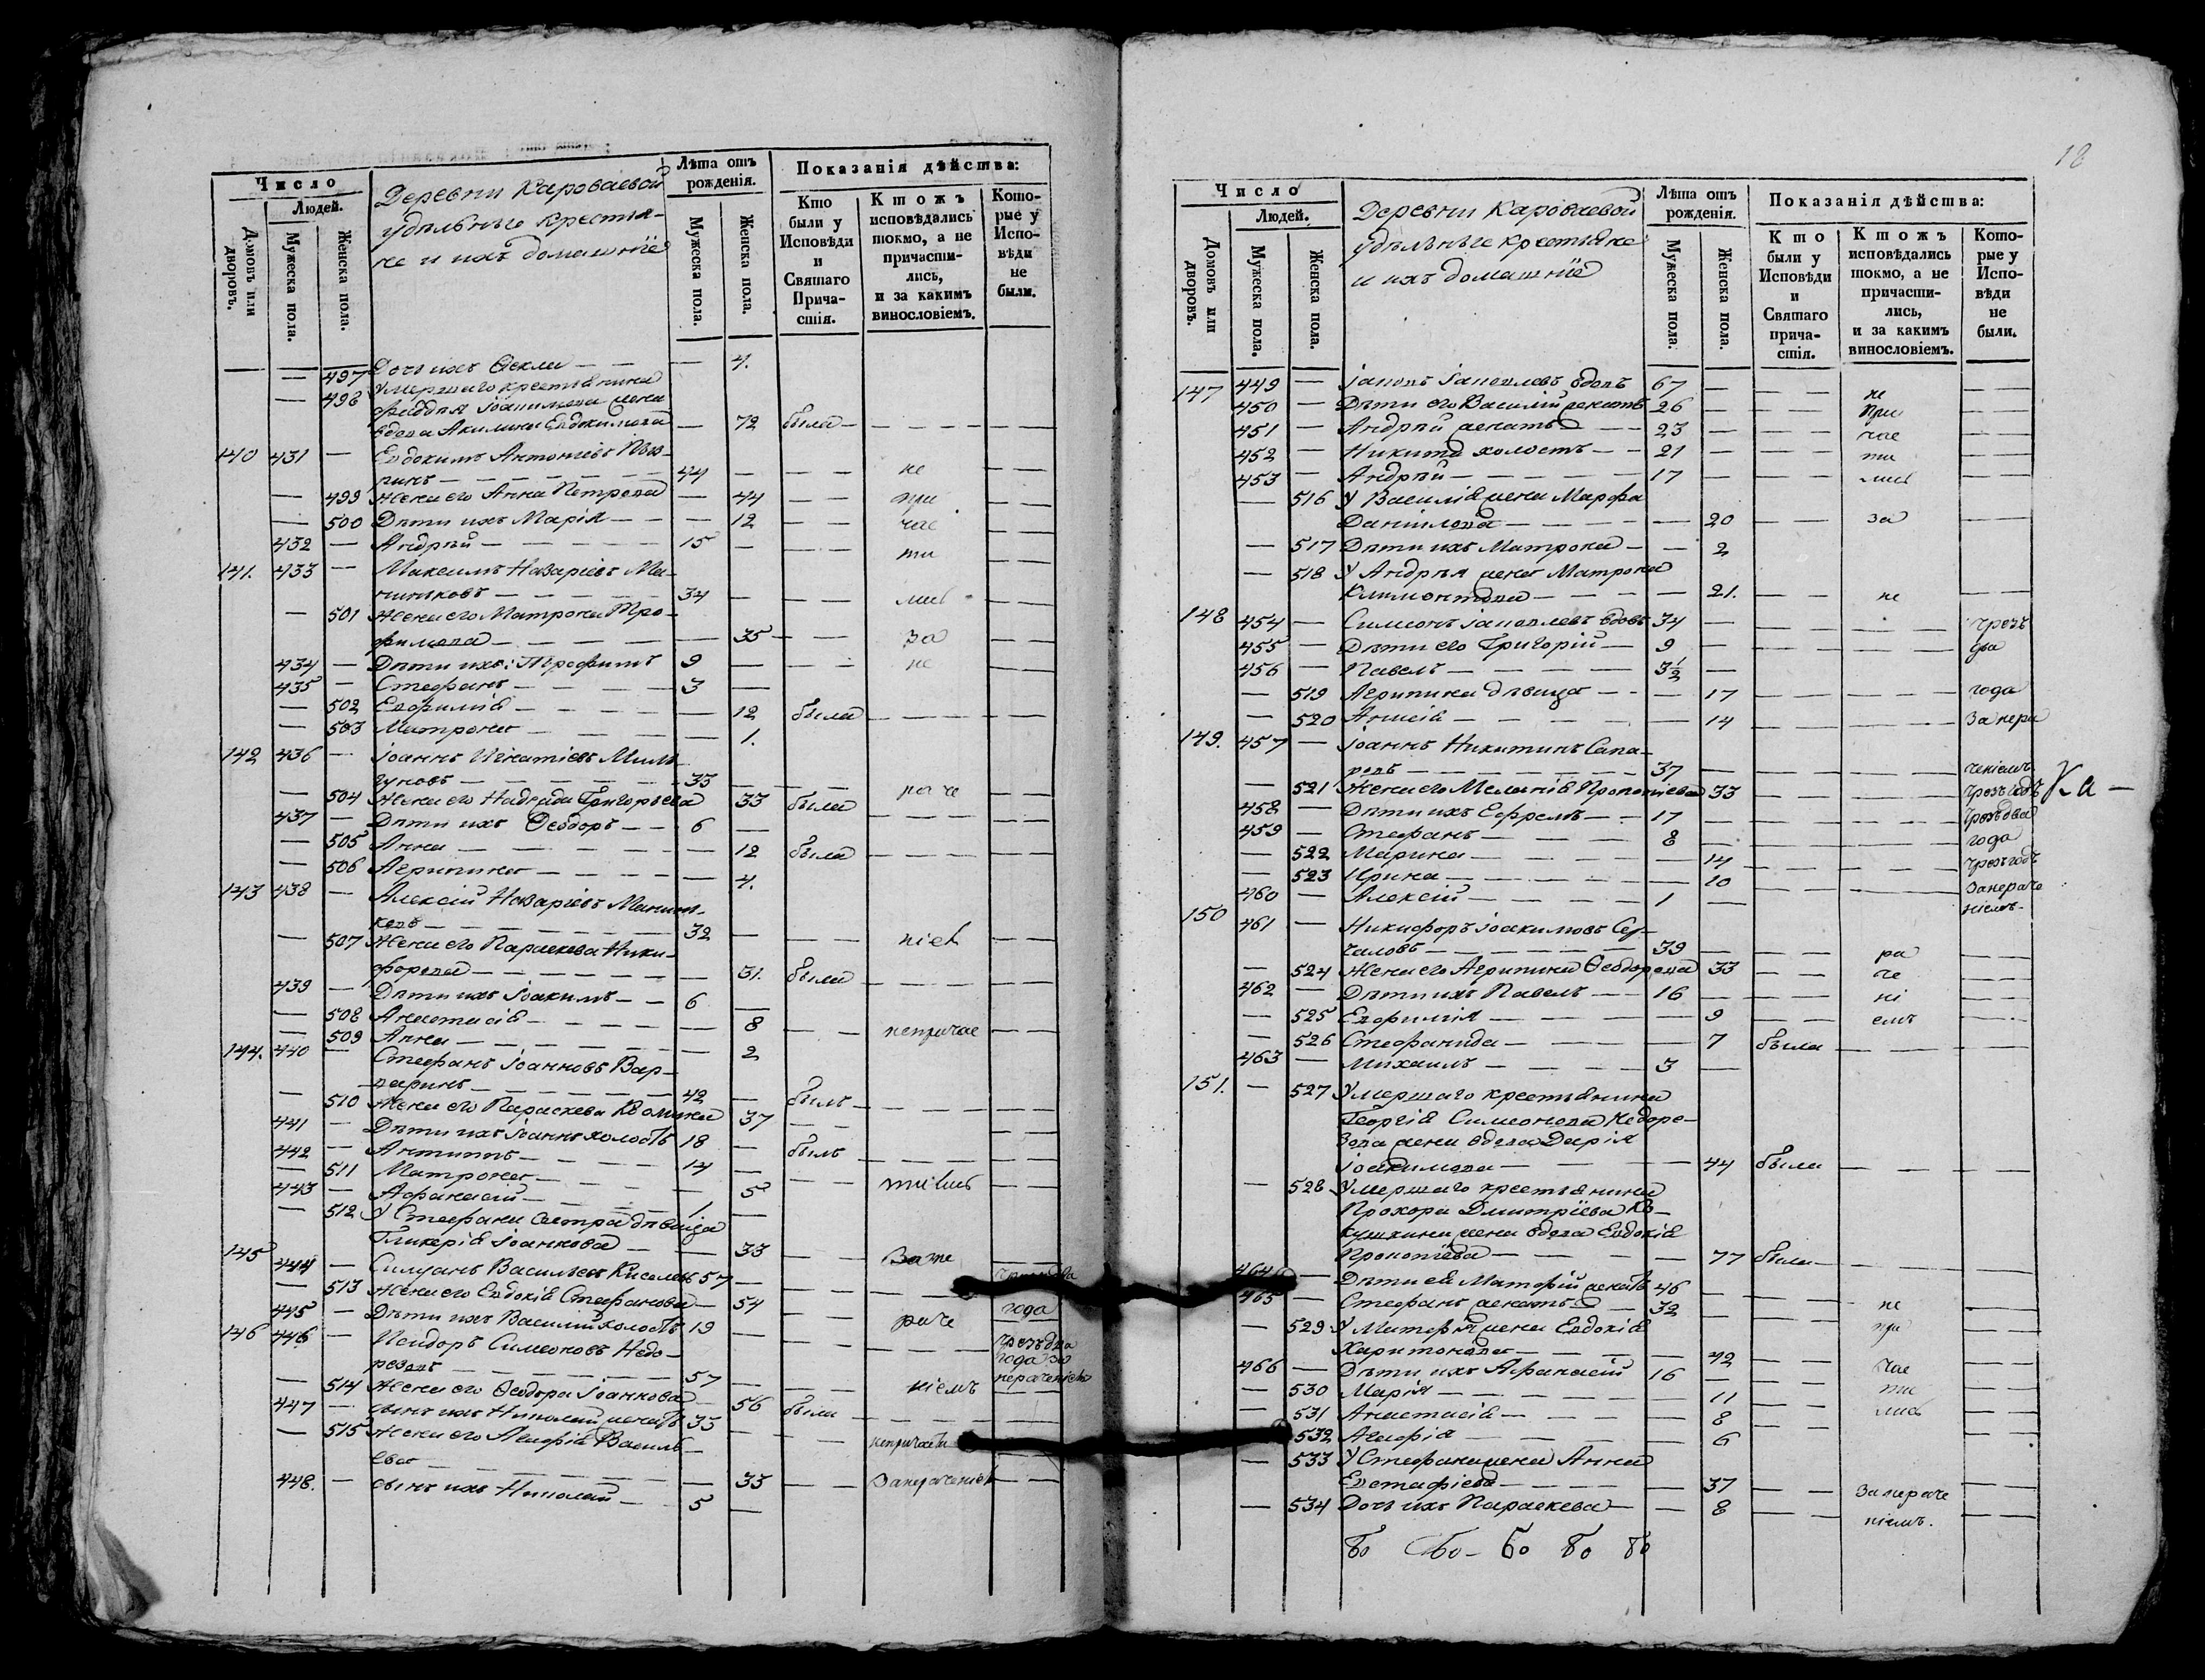 Число
Людей.
Домовъ или дворовъ.
Мужеска пола.
Женска пола.
Деревни Кароваевой
удѣльные крестья-
не и ихъ домашнїе
Лѣта отъ рожденія.
Мужеска пола.
Женска пола.
Показанія дѣйства:
Кто были у Исповѣди и Святаго Прича-стія.
Ктожъ исповѣдались токмо, а не причасти-лись, и за какимъ винословіемъ.
Кото-рые у Испо-вѣди не были.
— 497 Дочь ихъ Ѳекла — — 4.
— 498 Умершаго крестьянина
жена
вдова Акилина Евдокимова — 72 была — — — —
140 431 — Евдокимъ Антоніевъ
— — 44 — — — не — —
— 499 Жена его Анна Петрова — 44 — — при — —
— 500 Дѣти ихъ Марія — — 12 — — час — —
432 — Андрѣй — 15 — — — ти — —
141. 433 — Максимъ Назаріевъ Ма-
— 34 — — — лись — —
— 501 Жена его Матрона Тро-
фимова — — 35 — — за — —
434 — Дѣти ихъ: Трофимъ 9 — — — не — —
435 — Стефанъ — 3 —
— 502 Евфимія — — 12 была — — — —
— 503 Матрона — — 1.
142 436 — Іоаннъ Игнатіевъ
— 33 — — — раче — —
— 504 Жена его Надежда Григорьева 33 была — — — —
437 — Дѣти ихъ Ѳеодоръ — 6 —
— 505 Анна — — 12 была — — — —
— 506 Агрипина — — 4.
143 438 — Алексій Назаріевъ
— 32 — — — ніемъ — —
— 507 Жена его Параскева Ники-
форова — — 31. была — — — —
439 — Дѣти ихъ Іоакимъ — 6 —
— 508 Анастасія — — 8 — — непричас — —
— 509 Анна — — 2
144. 440 — Стефанъ Іоанновъ Вар-
— 42 — былъ — — — —
— 510 Жена его Параскева 37 — — — —
441 — Дѣти ихъ Іоаннъ холостъ 18 — былъ — — — —
442 — Антипъ — 14 — — — тилась — —
— 511 Матрона — — 5
443 — Аѳанасій — 1 —
— 512 У Стефана сестра дѣвица
Гликерія Іоаннова — — 33 — — за не — —
145 444 — Силуанъ Васильевъ Киселевъ 57 — — — — — чрезъ два
— 513 Жена его Евдокія Стефанова — 54 — — раче года
445 — Дѣти ихъ Василій холостъ 19 — — — — —
146 446 — Исидоръ Симеоновъ Недо-
резовъ — 57 — — — ніемъ чрезъ два
года за
нераченіемъ
— 514 Жена его Ѳеодора Іоаннова — 56 была — — — —
447 — сынъ ихъ Николай женатъ 35 — — — непричаст
— 515 Жена его Агафія Василь-
ева — — 33 — — занераченіемъ — —
448. — сынъ ихъ Николай — 5 —
18
Число
Людей.
Домовъ или дворовъ.
Мужеска пола.
Женска пола.
Деревни Кароваевой
удѣльные крестьяне
и ихъ домашнїе
Лѣта отъ рожденія.
Мужеска пола.
Женска пола.
Показанія дѣйства:
Кто были у Исповѣди и Святаго прича-стія.
Ктожъ исповѣдались токмо, а не причасти-лись, и за какимъ винословіемъ.
Кото-рые у Испо-вѣди не были.
147 449 — Іаковъ Іаковлевъ вдовъ 67 — — — не — —
450 — Дѣти его Василій женатъ 26 — — — при — —
451 — Андрѣй женатъ — 23 — — — час — —
452 — Никита холостъ — 21 — — — ти — —
453 — Андрѣй — 17 — — — лись — —
— 516 У Василія жена Марфа
Даніилова — — 20 — — за — —
— 517 Дѣти ихъ Матрона — — 2
— 518 У Андрѣя жена Матрона
Климонтова — — 21. — — не — —
148 454 — Симеонъ Іаковлевъ вдовъ 34 — — — — чрезъ
455 — Дѣти его Григорій — 9 — — — — два
456 — Павелъ — 3½ —
— 519 Агрипина дѣвица — — 17 — — — — года
— 520 Анисія — — 14 — — — — за нера
149. 457 — Іоаннъ Никитинъ Сапа-
ровъ — 37 — — — — ченіемъ
— 521 Жена его Меланія Прокопіева 33 — — — — чрезъ годъ
Ка —
458 — Дѣти ихъ Ефремъ — 17 — — — — чрезъ два
459 — Стефанъ — 8 — — — — года
— 522 Марина — — 14 — — — — чрезъ годъ
— 523 Ирина — — 10 — — — — занераче
460 — Алексій — 1 — ніемъ.
150 461 — Никифоръ Іоакимовъ Се-
чаловъ — 39 — — — ра — —
— 524 Жена его Агрипина Ѳеодорова 33 — — че — —
462 — Дѣти ихъ Павелъ — 16 — — — ні — —
— 525 Евфимія — — 9 — — емъ — —
— 526 Стефанида — — 7 была — — — —
463 — Михаилъ — 3 —
151. — 527 Умершаго крестьянина
Георгія Симеонова Недоре-
зова жена вдова Дарія
Іоакимова — — 44 была — — — —
— 528 Умершаго крестьянина
Прохора Дмитріева Ко-
кушкина жена вдова Евдокія
Прокопіева — — 77 была — — — —
464 — Дѣти ея Матфій женатъ 46 — — — не — —
465 — Стефанъ женатъ — 32 — — — при — —
— 529 У Матфѣя жена Евдокія
Харитонова — — 42 — — час — —
466 — Дѣти ихъ Аѳанасій 16 — — — ти — —
— 530 Марія — — 11 — — лись — —
— 531 Анастасія — — 8 — — — —
— 532 Агафія — — 6
— 533 У Стефана жена Анна
Евстафіева — — 37 — — за нераче — —
— 534 Дочь ихъ Параскева — — 8 — — ніемъ. — —